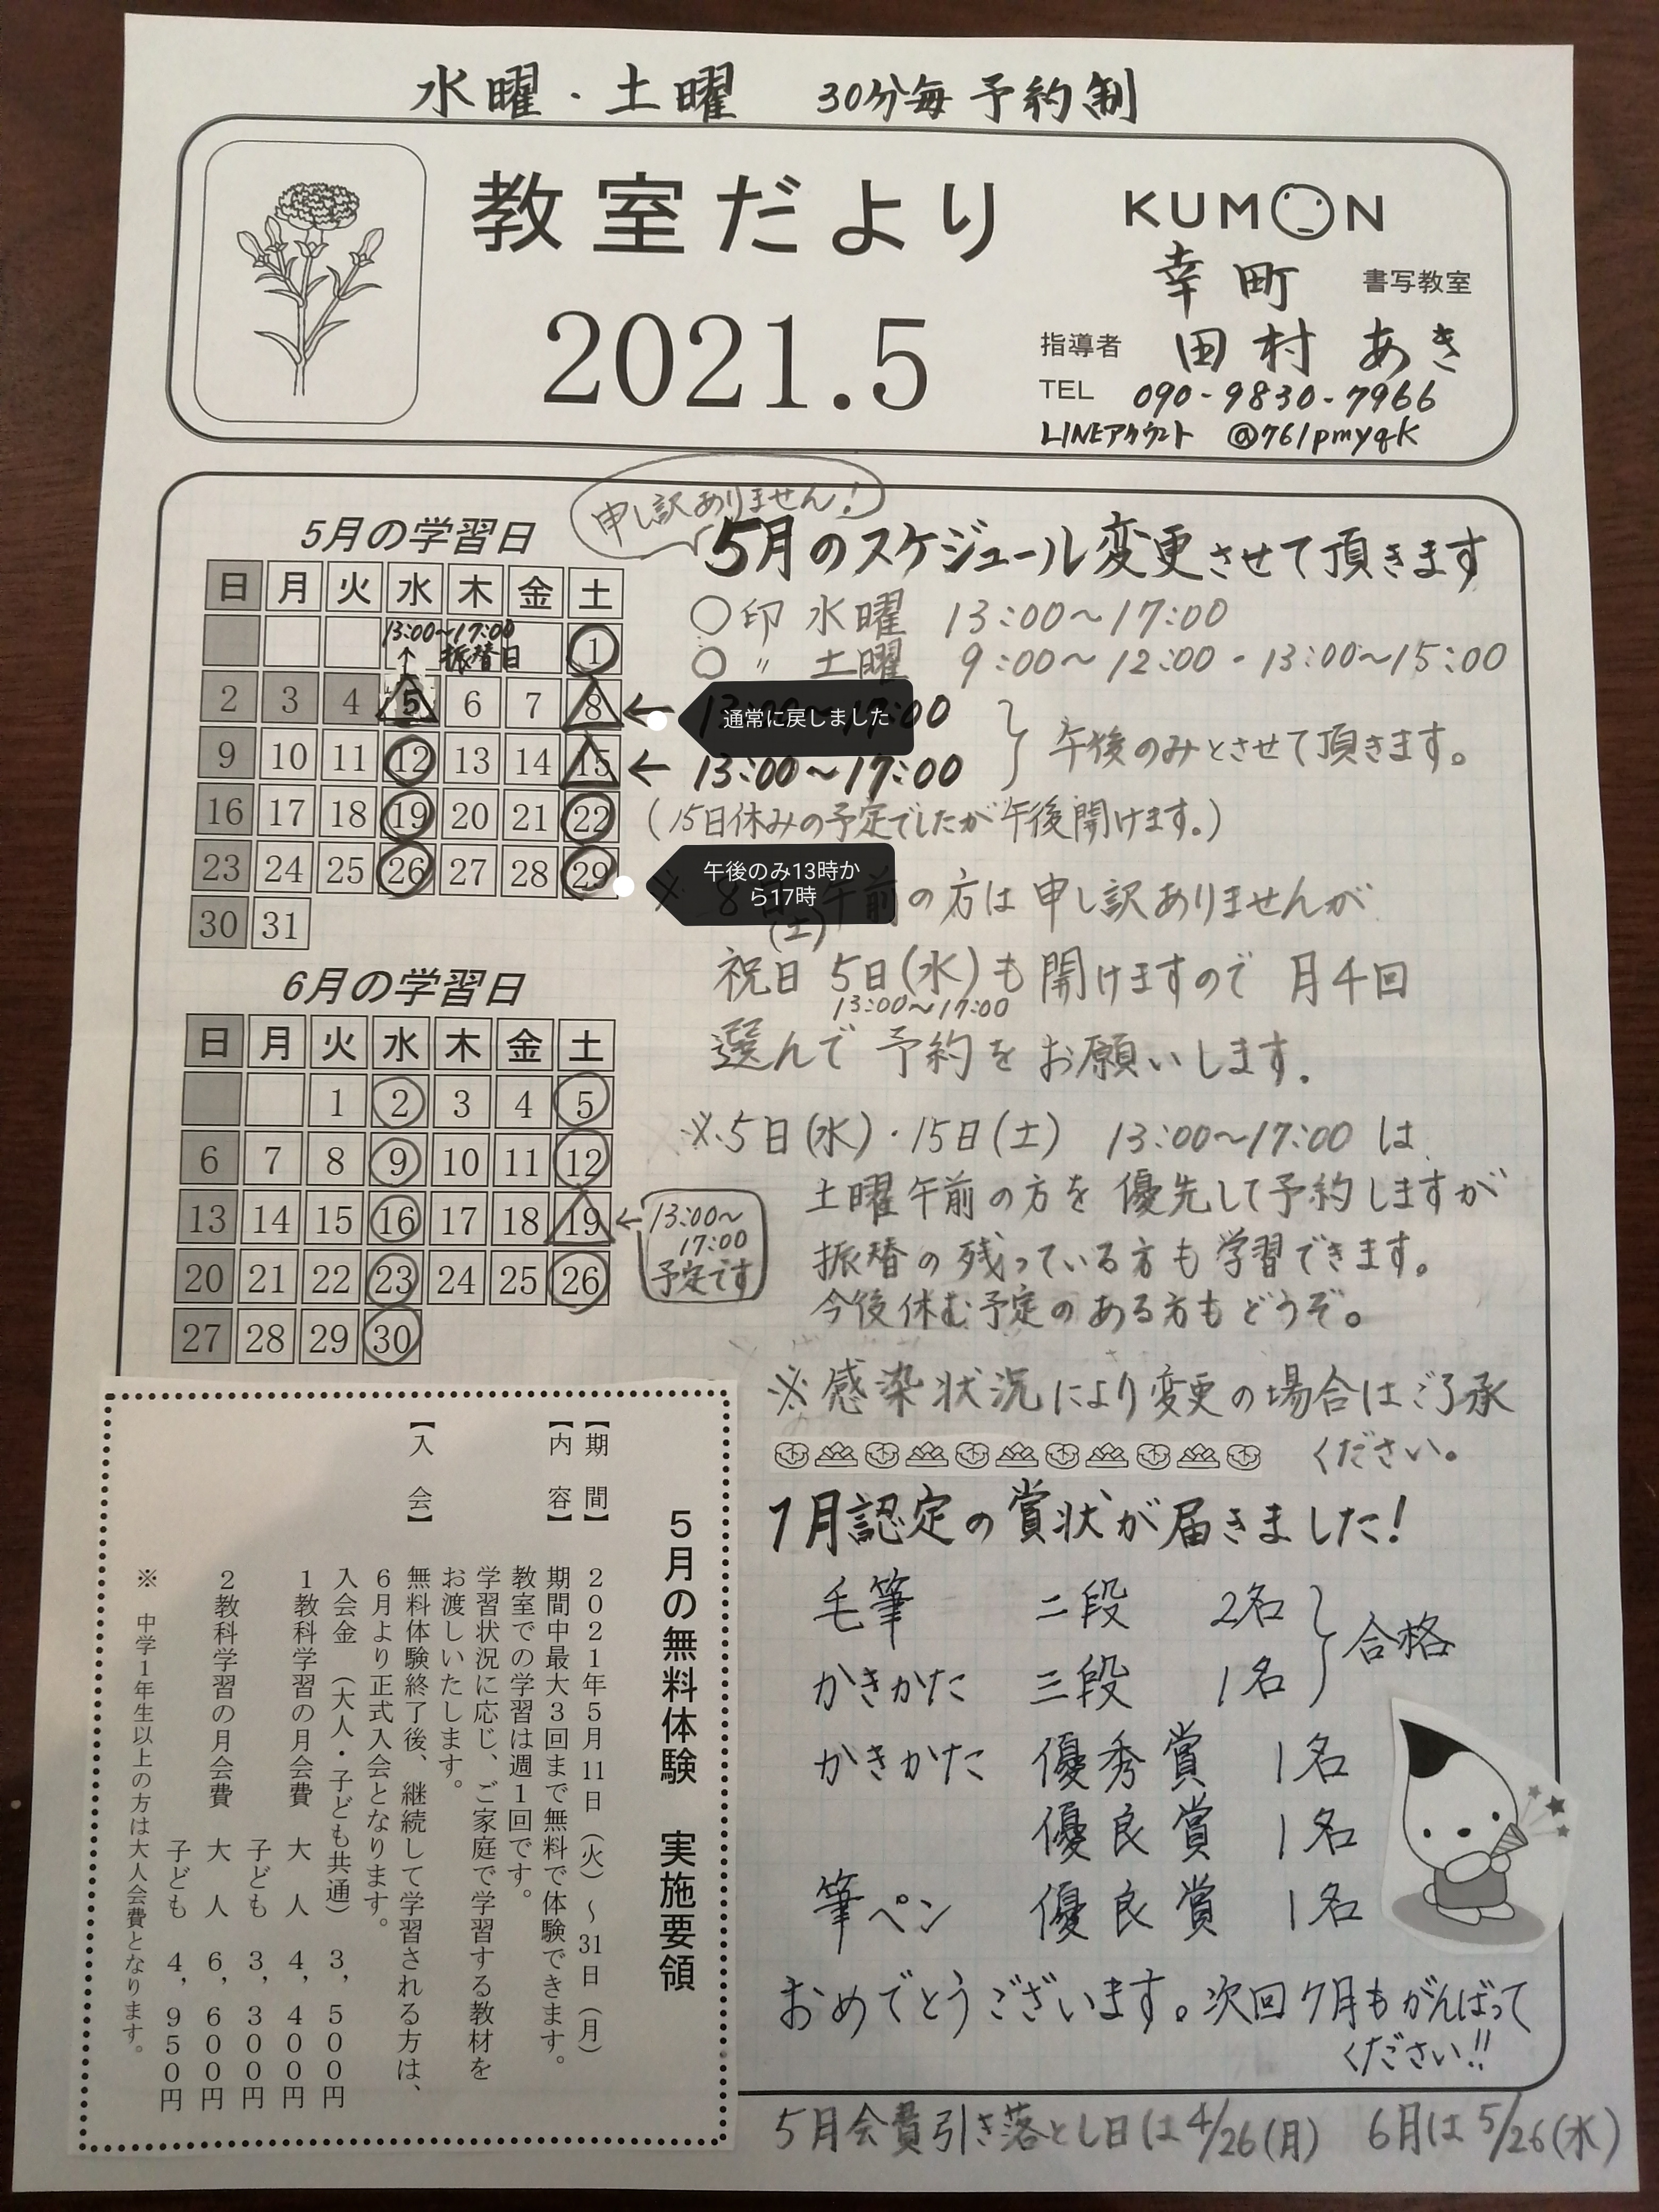 水曜・土曜 30分毎 予約制
教室だより
2021.5
KUMON
幸町 書写教室
指導者 田村 あき
TEL 090-9830-7966
LINEアカウント @761pmyqk
5月の学習日
日 月 火 水 木 金 土
13:00~17:00
↑ 振替日 1
2 3 4 5 6 7 8
9 10 11 12 13 14 15
16 17 18 19 20 21 22
23 24 25 26 27 28 29
30 31
6月の学習日
日 月 火 水 木 金 土
1 2 3 4 5
6 7 8 9 10 11 12
13 14 15 16 17 18 19
20 21 22 23 24 25 26
27 28 29 30
←13:00~
17:00
予定です
申し訳ありません!
5月のスケジュール変更させて頂きます
○印 水曜 13:00~17:00
○〃 土曜 9:00~12:00・13:00~15:00
通常に戻しました
← 13:00~17:00
午後のみとさせて頂きます。
(15日休みの予定でしたが午後開けます。)
午後のみ13時か
ら17時
※ 8日(土)午前の方は申し訳ありませんが
祝日 5日(水)も開けますので 月4回
13:00~17:00
選んで 予約を お願いします.
※5日(水)・15日(土) 13:00~17:00 は
土曜午前の方を 優先して予約しますが
振替の残っている方も学習できます。
今後休む予定のある方もどうぞ。
※感染状況により変更の場合はご了承
ください。
1月認定の賞状が届きました!
毛筆 二段 2名
かきかた 三段 1名
合格
かきかた 優秀賞 1名
優良賞 1名
筆ペン 優良賞 1名
おめでとうございます。次回7月もがんばって
ください!!
5月の無料体験 実施要領
【期 間】 2021年5月11日(火)~31日(月)
【内 容】 期間中最大3回まで無料で体験できます。
教室での学習は週1回です。
学習状況に応じ、ご家庭で学習する教材を
お渡しいたします。
【入 会】 無料体験終了後、継続して学習される方は、
6月より正式入会となります。
入会金 (大人・子ども共通) 3,500円
1教科学習の月会費 大 人 4,400円
子ども 3,300円
2教科学習の月会費 大 人 6,600円
子ども 4,950円
※ 中学1年生以上の方は大人会費となります。
5月会費引き落とし日は4/26(月) 6月は5/26(水)